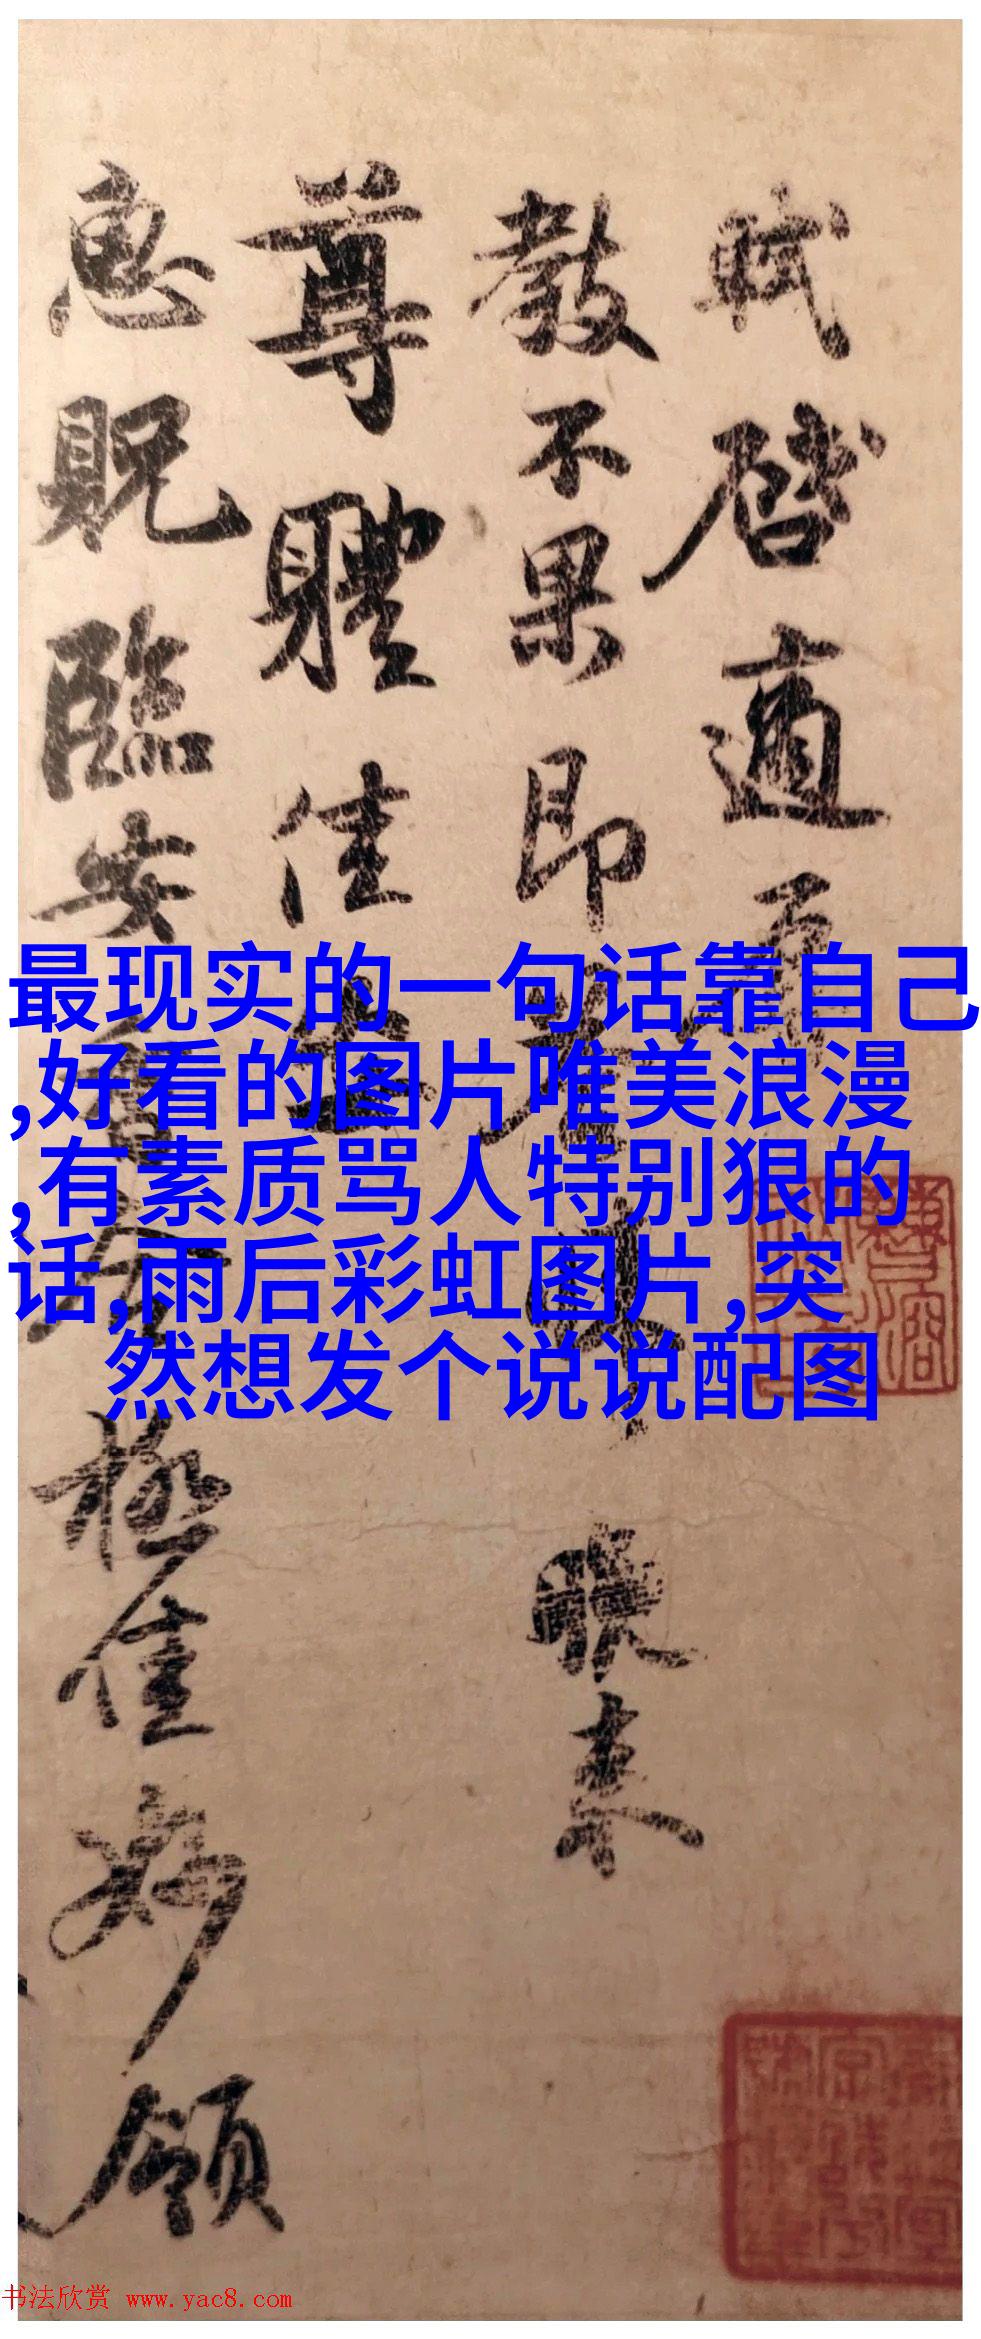 軾啓適辱
教不果即答 晚來
尊體佳
惠貺臨安香合極佳妙領
最现实的一句话靠自己
,好看的图片唯美浪漫
,有素质骂人特别狠的
话,雨后彩虹图片,突
然想发个说说配图
书法欣赏 www.yac8.com